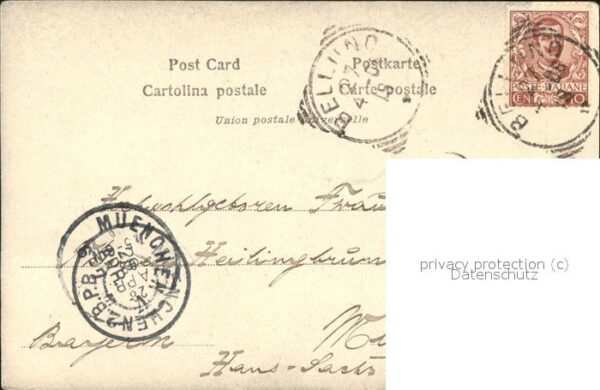 Post Card Postkarte
Cartolina postale Carte postale
Union postale universelle
BELLUNO
BELLUNO
POSTE ITALIANE
Hochwohlgeboren Frau
Heilingbrun
MUENCHEN 2.B.P.B.
Bayern Mü
Hans-Sachs
privacy protection (c)
Datenschutz